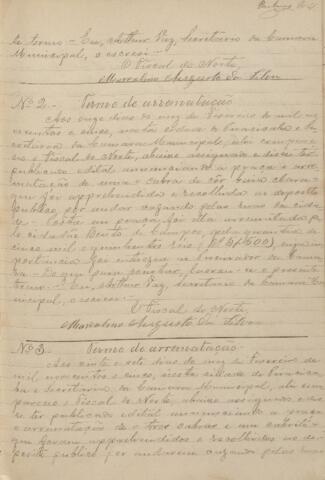 te termo. Eu, Arthur Vaz, Secretario da Camara
Municipal, o escrevi.
O Fiscal do Norte,
Marcolino Augusto da Silva
Nº 2. Termo de arrematação
Aos onze dias do mez de Fevereiro de mil no-
vecentos e cinco, nesta cidade de Piracicaba e Se-
cretaria da Camara Municipal, ahi compare-
ceu o Fiscal do Norte, abaixo assignado e disse ter
publicado edital annunciando a praça e arre-
matação de uma cabra de côr baia clara
que foi apprehendida e recolhida ao deposito
publico por andar vagando pelas ruas da cida-
de. Posta em praça foi ella arrematada pe-
lo cidadão Bento de Campos, pela quantia de
cinco mil e quinhentos réis (Rs 5$500), cuja im-
portancia foi entregue ao Procurador da Cama-
ra. Do que para constar, lavrou-se o presente
termo. Eu, Arthur Vaz, Secretario da Camara Mu-
nicipal, o escrevi.
O Fiscal do Norte,
Marcolino Augusto da Silva
Nº 3. Termo de arrematação
Aos vinte e oito dias do mez de Fevereiro de
mil novecentos e cinco, nesta cidade de Piracica-
ba e Secretaria da Camara Municipal, ahi com-
pareceu o Fiscal do Norte, abaixo assignado e dis-
se ter publicado edital annunciando a praça
e arrematação de tres cabras e um cabrito
que foram apprehendidos e recolhidos ao de-
posito publico por andarem vagando pelas ruas